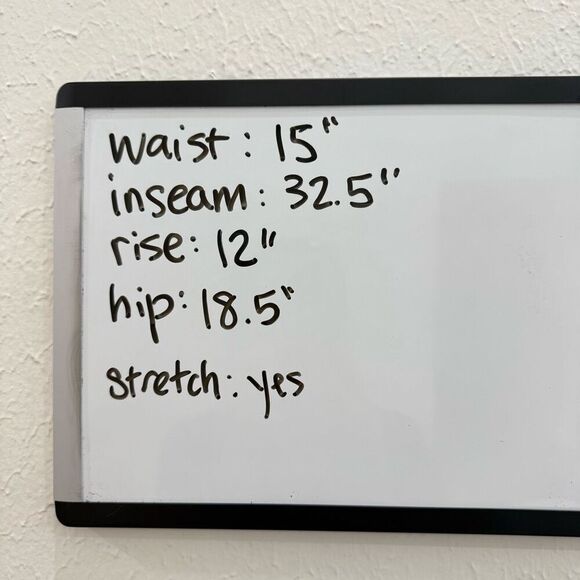 waist: 15"
inseam: 32.5"
rise: 12"
hip: 18.5"
stretch: yes